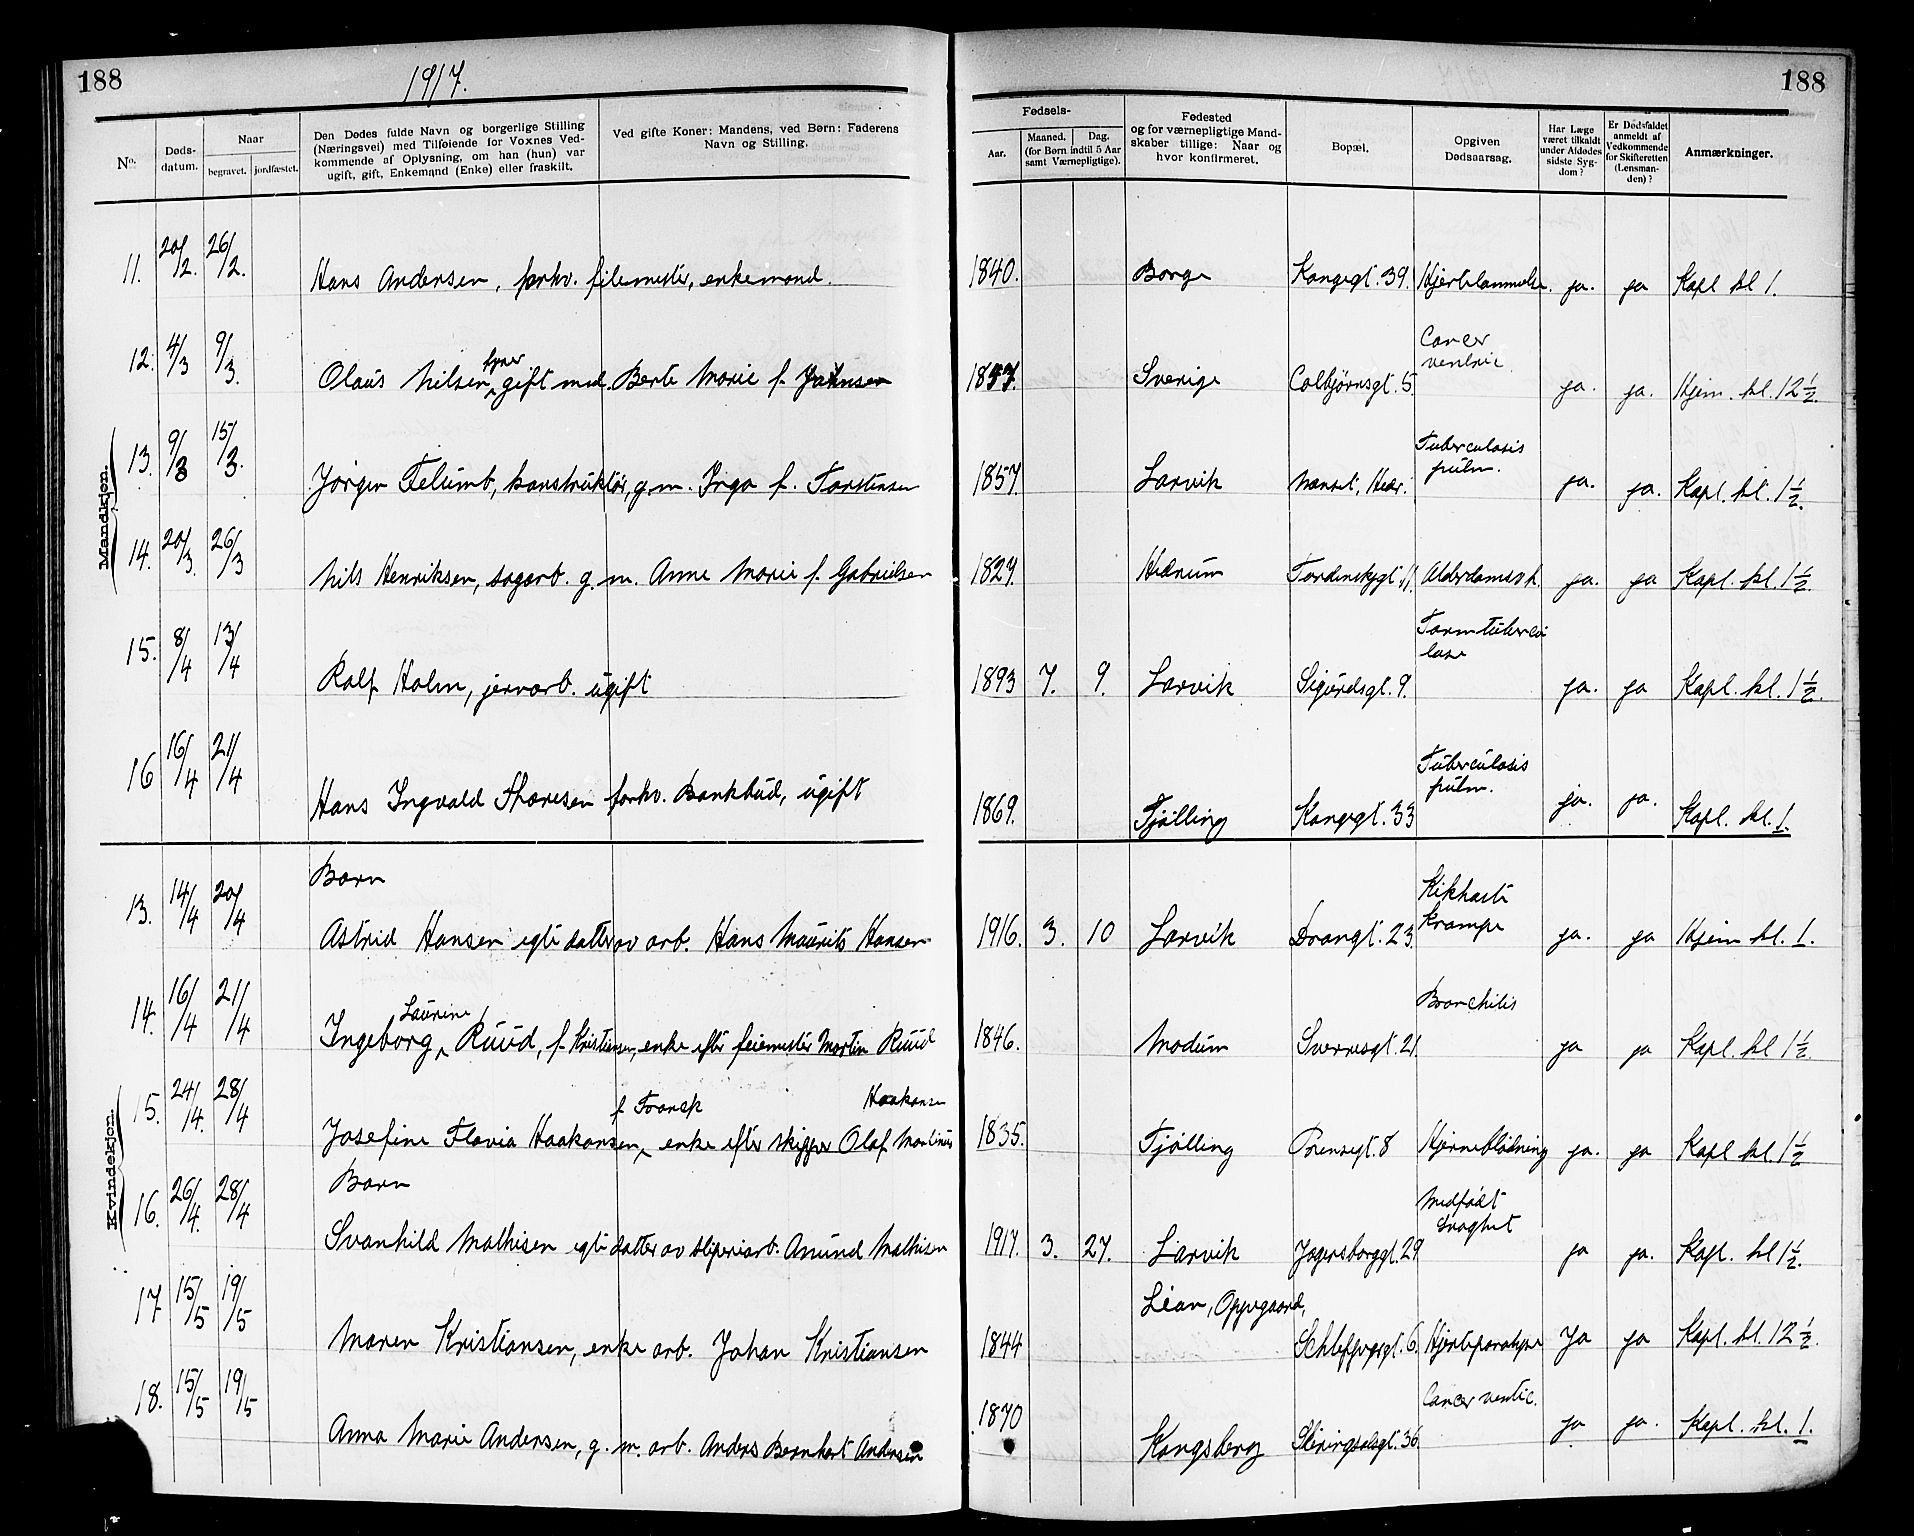 188
1917.
188
No. Døds-datum. Naar begravet. jordfæstet. Den Dødes fulde Navn og borgerlige Stilling (Næringsvei) med Tilføiende for Voxnes Vedkommende af Oplysning, om han (hun) var ugift, gift, Enkemand (Enke) eller fraskilt. Ved gifte Koner: Mandens, ved Børn: Faderens Navn og Stilling. Fødsels- Aar. Maaned. Dag. (for Børn indtil 5 Aar samt Værnepligtige). Fødested og for værnepligtige Mandskaber tillige: Naar og hvor konfirmeret. Bopæl. Opgiven Dødsaarsag. Har Læge været tilkaldt under Afdødes sidste Sygdom? Er Dødsfaldet anmeldt af Vedkommende for Skifteretten (Lensmanden)? Anmærkninger.
Mandkjøn.
11. 20/2. 26/2. Hans Andersen, forhv. filemester, enkemand. 1840. Borge Kongegt. 39. Hjertelammelse. ja. ja Kapl kl 1.
12. 4/3 9/3. Olaus Nilsen, gift med Berte Marie f. Johnsen 1857. Sverige Colbjørnsgt. 5. Cancer ventric ja. ja. Hjem. kl. 12 1/2.
13. 9/3 15/3. Jørgen Felumb, konstruktør, g. m. Inga f. Torstensen 1857. Larvik Nanset, Hedr. Tuberculosis pulm. ja. ja. Kapl. kl. 1 1/2.
14. 20/3. 26/3 Nils Henriksen, sagarb. g. m. Anne Marie f. Gabrielsen 1827. Hedrum Tordenskjgt. 11. Alderdomssvh. ja. ja Kapl. kl. 1 1/2.
15. 8/4 13/4 Rolf Holm, jernarb. ugift 1893 7. 9. Larvik Sigurdsgt. 9. Tarmtubercu lose ja. ja Kapl. kl. 1 1/2.
16 16/4 21/4 Hans Ingvald Thoresen forhv. Bankbud, ugift 1869. Tjølling Kongegt. 33 Tuberculosis pulm. ja. ja. Kapl. kl. 1.
Kvindekjøn.
Barn
13. 14/4 20/4 Astrid Hansen egte datter av arb. Hans Maurits Hansen 1916. 3. 10 Larvik Dronngt. 23. Kikhoste krampe ja. ja Hjem kl. 1.
14. 16/4 21/4 Ingeborg Laurine Ruud, f. Kristiansen, enke efter feiemester Martin Ruud 1846. Modum Sverresgt. 21. Bronchitis ja ja Kapl. kl 1 1/2.
15. 24/4. 28/4 Josefine Flavia Haakonsen f Transk, enke efter skipper Olaf Martinius Haakonsen 1835. Tjølling Prinsegt. 8 Hjerneblødning ja. ja Kapl kl. 1 1/2
Barn
16. 26/4. 28/4 Svanhild Mathisen egte datter av sliperiarb. Anund Mathisen 1917. 3. 27. Larvik Jegersborggt. 29 Medfødt svaghet ja ja. Kapl. kl 1 1/2.
17 15/5 19/5 Maren Kristiansen, enke arb. Johan Kristiansen 1844 Lian, Oppegaard, 6. Hjerteparalyse Ja ja Kapl. kl. 12 1/2.
18. 15/5 19/5 Anna Marie Andersen, g. m. arb. Anders Bernhart Andersen 1870 Kongsberg Skiringsalsgt. 36 Cancer ventric. ja ja. Kapl. kl. 1.